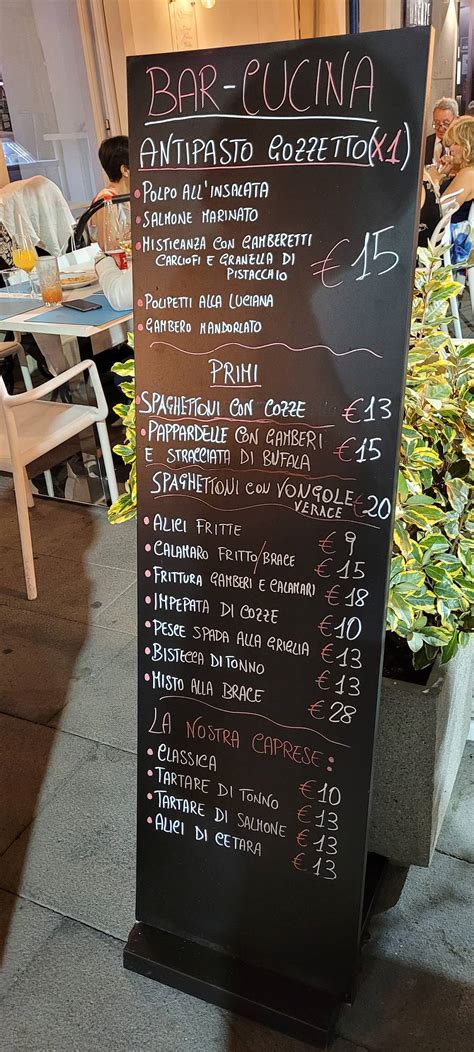 BAR-CUCINA
ANTIPASTO GOZZETTO (X1)
• POLPO ALL'INSALATA
• SALMONE MARINATO
• MISTICANZA CON GAMBERETTI
CARCIOFI E GRANELLA DI
PISTACCHIO
€ 15
• POLIPETTI ALLA LUCIANA
• GAMBERO MANDORLATO
PRIMI
• SPAGHETTONI CON COZZE € 13
• PAPPARDELLE CON GAMBERI
E STRACCIATA DI BUFALA € 15
SPAGHETTONI CON VONGOLE
VERACE € 20
• ALICI FRITTE € 9
• CALAMARO FRITTO/BRACE € 15
• FRITTURA GAMBERI E CALAMARI € 18
• IMPEPATA DI COZZE € 10
• PESCE SPADA ALLA GRIGLIA € 13
• BISTECCA DI TONNO € 13
• MISTO ALLA BRACE € 28
LA NOSTRA CAPRESE:
• CLASSICA € 10
• TARTARE DI TONNO € 13
• TARTARE DI SALMONE € 13
• ALICI DI CETARA € 13